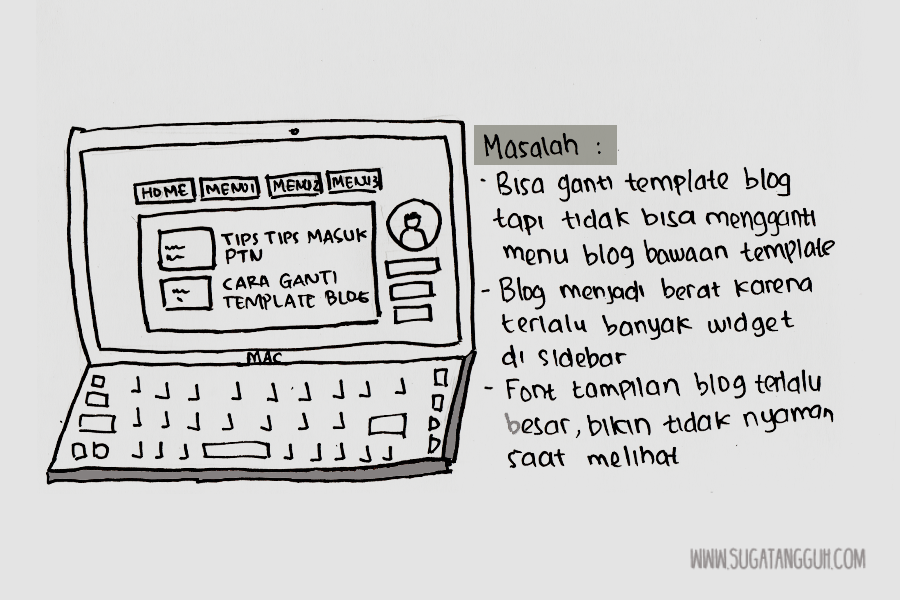 HOME MENU1 MENU2 MENU3
TIPS TIPS MASUK
PTN
CARA GANTI
TEMPLATE BLOG
MAC
Masalah :
- Bisa ganti template blog
tapi tidak bisa mengganti
menu blog bawaan template
- Blog menjadi berat karena
terlalu banyak widget
di sidebar
- Font tampilan blog terlalu
besar, bikin tidak nyaman
saat melihat
WWW.SUGATANGGUH.COM